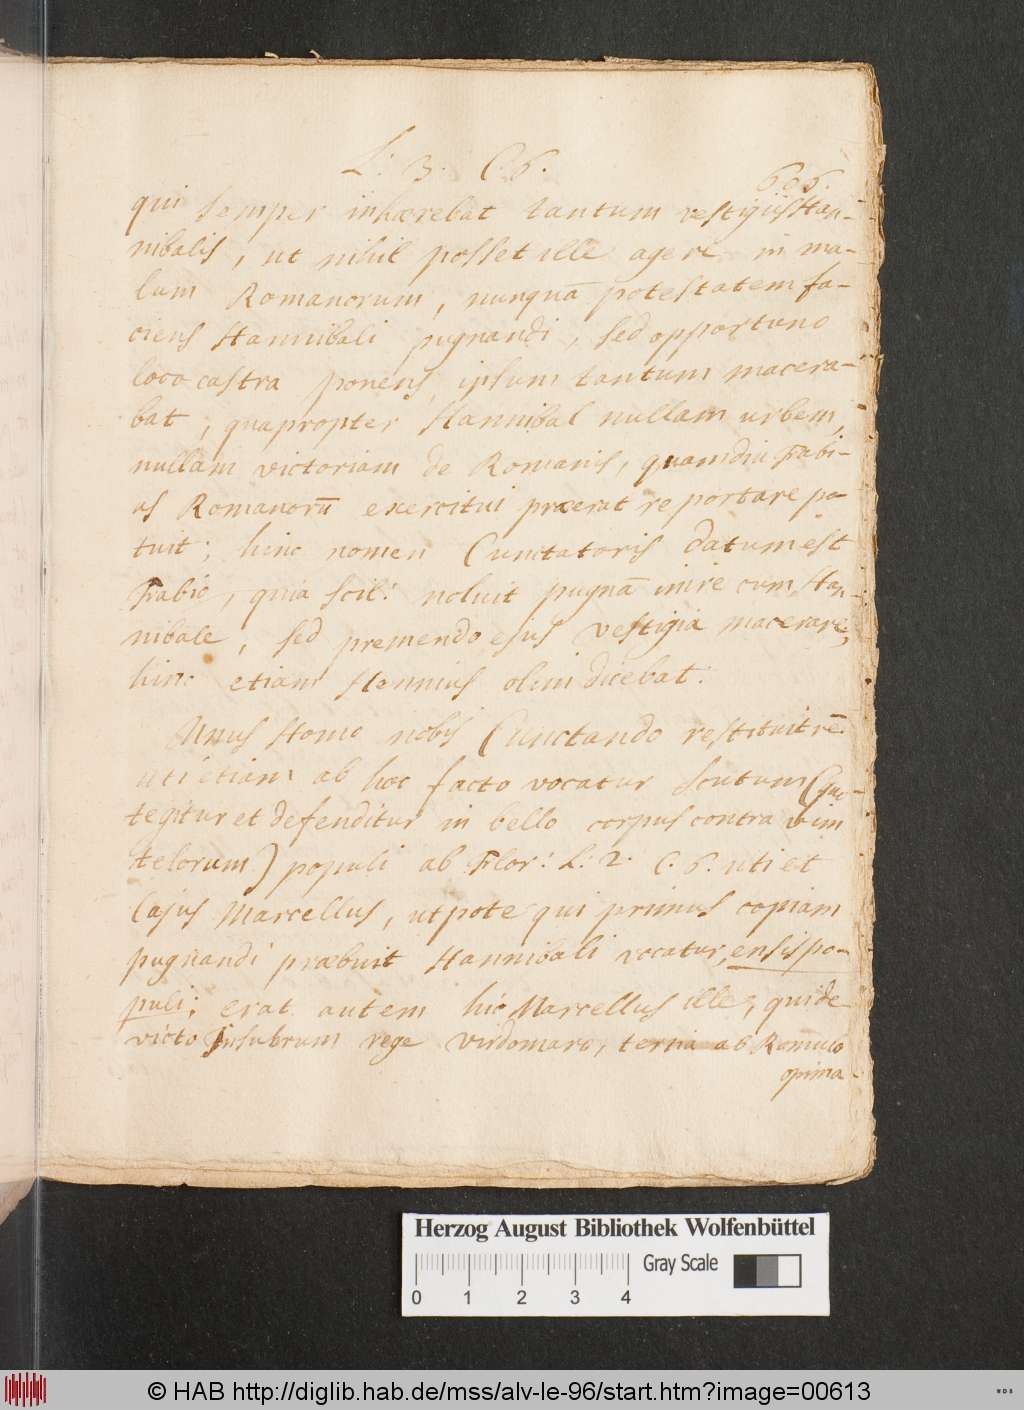 L: 3. C. 6.
606.
qui semper inhærebat tantum vestigiis Han-
nibalis, ut nihil posset ille agere in ma-
lum Romanorum, nunquā potestatem fa-
ciens Hannibali pugnandi, sed opportuno
loco castra ponens, ipsum tantum macera-
bat, quapropter Hannibal nullam urbem,
nullam victoriam de Romanis, quamdiu Fabi-
us Romanorū exercitui præerat reportare po-
tuit; hinc nomen Cunctatoris datum est
Fabio, quia scil: noluit pugnā inire cum Han-
nibale, sed premendo ejus vestigia macerare,
hinc etiam Hennius olim dicebat:
Unus Homo nobis Cunctando restituit rē
uti etiam ab hoc facto vocatur scutum (quo
tegitur et defenditur in bello corpus contra vim
telorum) populi ab Flor: L: 2. C. 6. uti et
Cajus Marcellus, utpote qui primus copiam
pugnandi præbuit Hannibali vocatur, ensis po-
puli; erat autem hic Marcellus ille, qui de
victo Insubrum rege Virdomaro, tertia ab Romulo
opima
Herzog August Bibliothek Wolfenbüttel
Gray Scale
0 1 2 3 4
© HAB http://diglib.hab.de/mss/alv-le-96/start.htm?image=00613